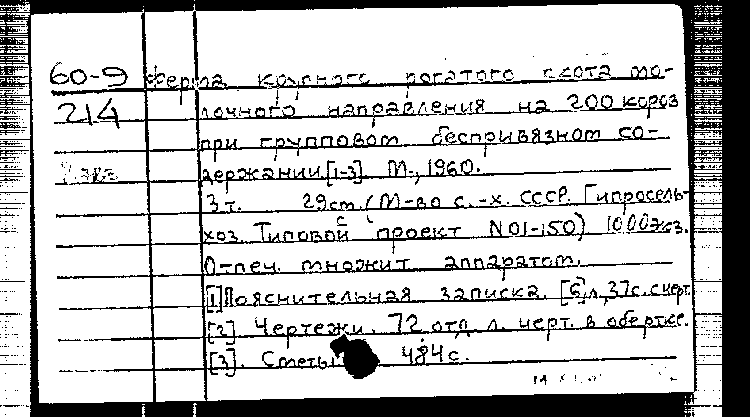 60-9 Ферма крупного рогатого скота мо-
214 лочного направления на 200 коров
при групповом беспривязном со-
держании [1-3]. М., 1960.
3 т. 29см. (М-во с.-х. СССР. Гипросель-
хоз. Типовой проект N 01-150) 1000 экз.
Отпеч. множит. аппаратом.
[1] Пояснительная записка. [6] л, 37 с. с черт.
[2] Чертежи. 72 отд. л. черт. в обертке.
[3]. Сметы 484 с.